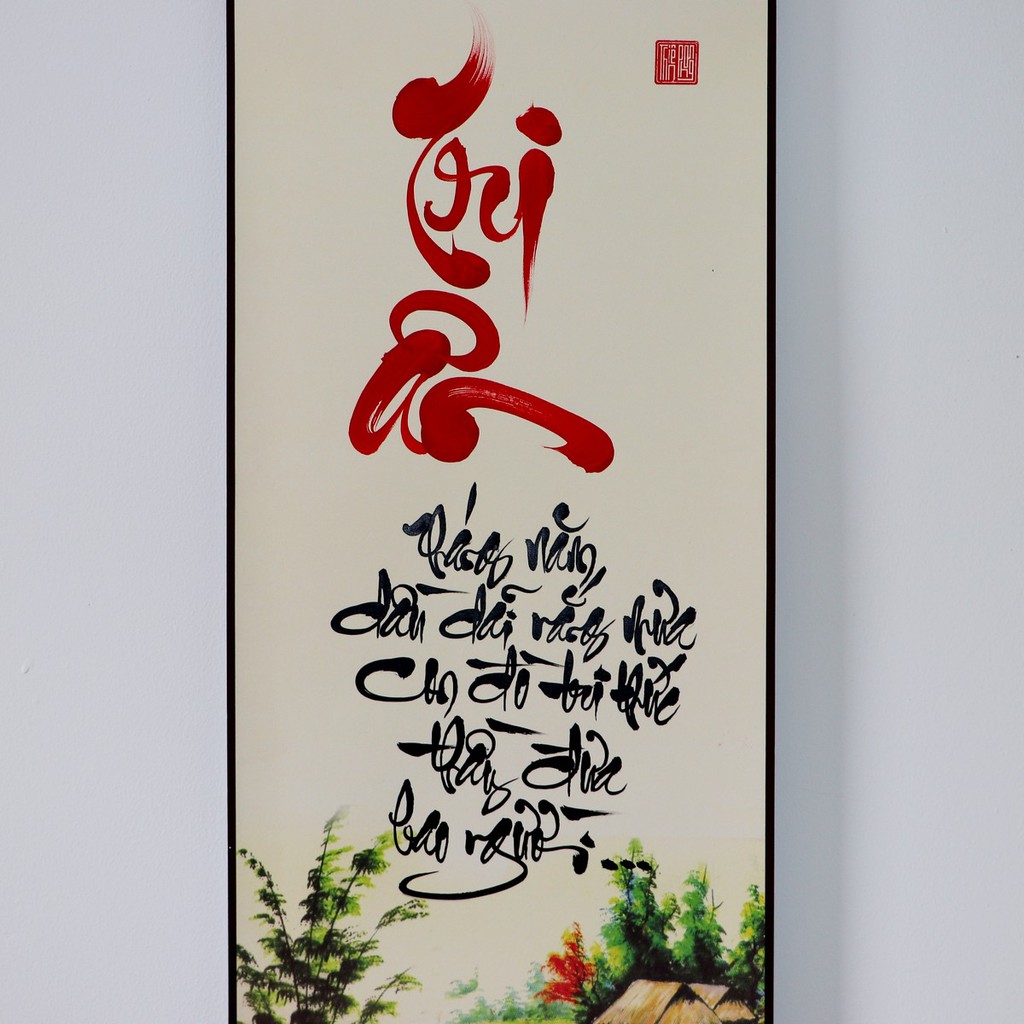 Tri
Ân
Tháng năm
dầu dãi nắng mưa
Con đò tri thức
thầy đưa
bao người...